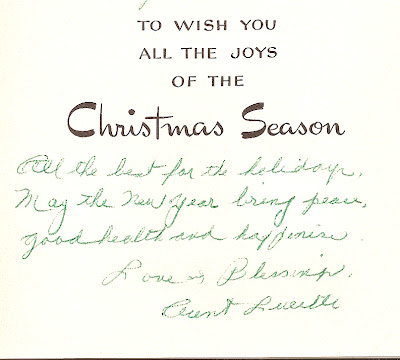 TO WISH YOU
ALL THE JOYS
OF THE
Christmas Season
All the best for the holidays.
May the New Year bring peace,
good health and happiness.
Love & Blessings,
Aunt Lucille